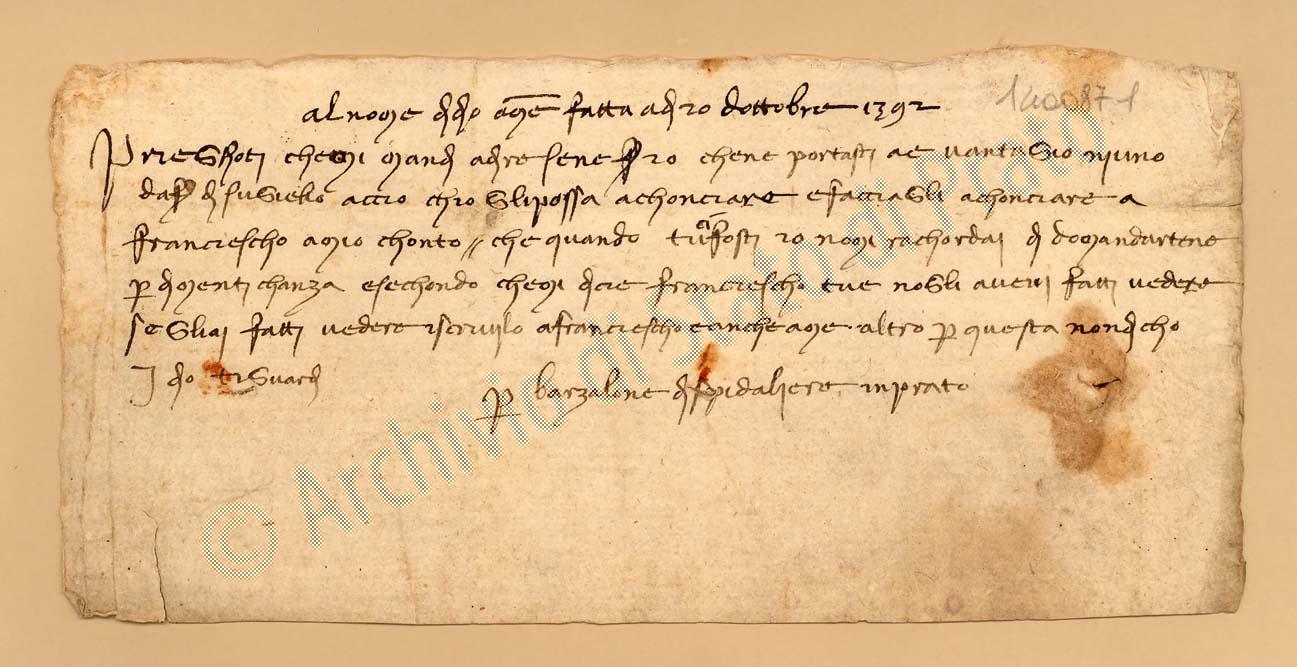 al nome di dio ame fatta a dì 20 d ottobre 1392
Prieghoti che mi mandi a dire se ne f. 20 che ne portasti ae vantagio niuno
da f. di sugiello accio ch io gli possa achonciare e facciagli achonciare a
francescho a mio chonto // che quando tu ci fosti io no mi rachordai di domandartene
p dimentichanza e sechondo che mi dicie francescho tue no gli avevi fatti vedere
se gli ai fatti vedere iscrivilo a francescho e anche a me altro p questa non dicho
Idio ti guardi
p barzalone di spidaliere in prato
© Archivio di Stato di Prato